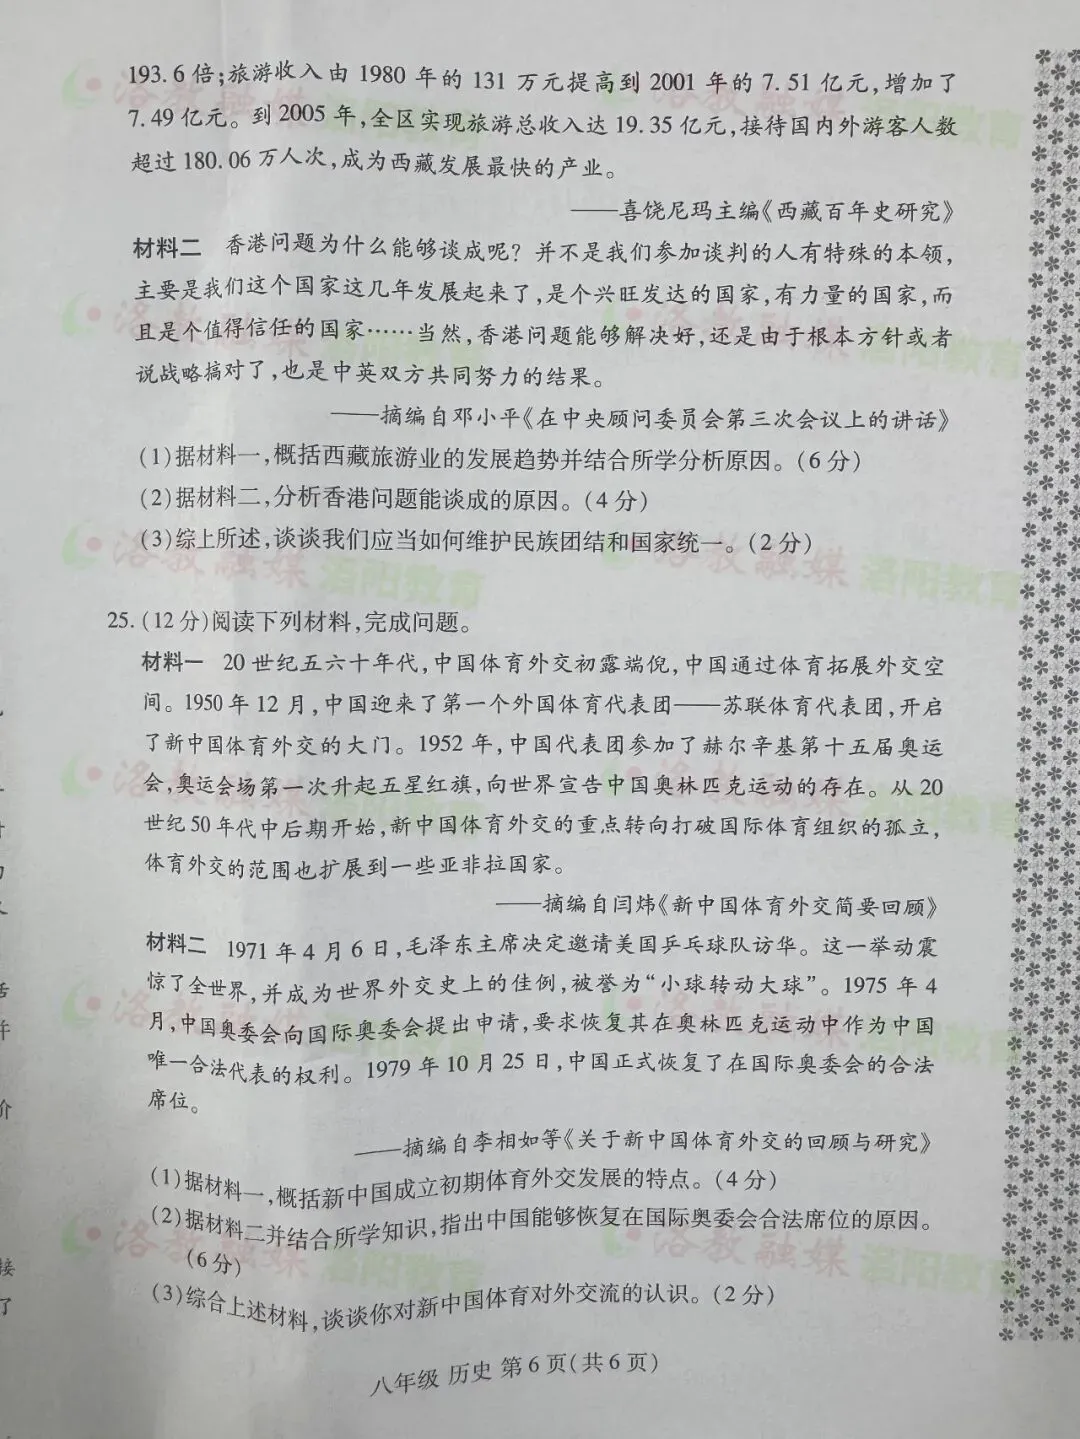 193.6倍;旅游收入由1980年的131万元提高到2001年的7.51亿元,增加了
7.49亿元。到2005年,全区实现旅游总收入达19.35亿元,接待国内外游客人数
超过180.06万人次,成为西藏发展最快的产业。
——喜饶尼玛主编《西藏百年史研究》
材料二 香港问题为什么能够谈成呢？并不是我们参加谈判的人有特殊的本领,
主要是我们这个国家这几年发展起来了,是个兴旺发达的国家,有力量的国家,而
且是个值得信任的国家……当然,香港问题能够解决好,还是由于根本方针或者
说战略搞对了,也是中英双方共同努力的结果。
——摘编自邓小平《在中央顾问委员会第三次会议上的讲话》
(1)据材料一,概括西藏旅游业的发展趋势并结合所学分析原因。(6分)
(2)据材料二,分析香港问题能谈成的原因。(4分)
(3)综上所述,谈谈我们应当如何维护民族团结和国家统一。(2分)
25.(12分)阅读下列材料,完成问题。
材料一 20世纪五六十年代,中国体育外交初露端倪,中国通过体育拓展外交空
间。1950年12月,中国迎来了第一个外国体育代表团——苏联体育代表团,开启
了新中国体育外交的大门。1952年,中国代表团参加了赫尔辛基第十五届奥运
会,奥运会场第一次升起五星红旗,向世界宣告中国奥林匹克运动的存在。从20
世纪50年代中后期开始,新中国体育外交的重点转向打破国际体育组织的孤立,
体育外交的范围也扩展到一些亚非拉国家。
——摘编自闫炜《新中国体育外交简要回顾》
材料二 1971年4月6日,毛泽东主席决定邀请美国乒乓球队访华。这一举动震
惊了全世界,并成为世界外交史上的佳例,被誉为“小球转动大球”。1975年4
月,中国奥委会向国际奥委会提出申请,要求恢复其在奥林匹克运动中作为中国
唯一合法代表的权利。1979年10月25日,中国正式恢复了在国际奥委会的合法
席位。
——摘编自李相如等《关于新中国体育外交的回顾与研究》
(1)据材料一,概括新中国成立初期体育外交发展的特点。(4分)
(2)据材料二并结合所学知识,指出中国能够恢复在国际奥委会合法席位的原因。
(6分)
(3)综合上述材料,谈谈你对新中国体育对外交流的认识。(2分)
八年级 历史 第6页(共6页)
洛教融媒 洛阳教育